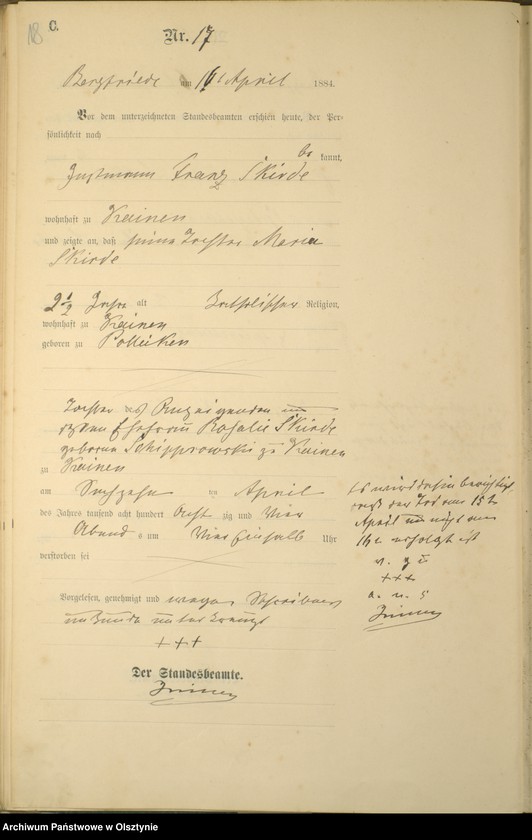 C.
Nr. 17
Bergfriede am 16t April 1884.
Vor dem unterzeichneten Standesbeamten erschien heute, der Per-
sönlichkeit nach
be kannt,
Instmann Franz Skirde
wohnhaft zu Kainen
und zeigte an, daß seine Tochter Maria
Skirde
2 1/2 Jahr alt Katholischer Religion,
wohnhaft zu Kainen
geboren zu
Tochter des Anzeigenden und
Ehefrau Rosalie Skirde
geborene zu Kainen
zu Kainen
am Sechzehn ten April
des Jahres tausend acht hundert Acht zig und Vier
Abend s um Uhr
verstorben sei
Vorgelesen, genehmigt und wegen Schreibens
unkunde unterkreuzt
+++
Der Standesbeamte.
Es wird dahin berichtigt
daß der Tod am 15t
April und nicht am
16t erfolgt ist
v. g. u.
+++
a. u. s
Archiwum Państwowe w Olsztynie